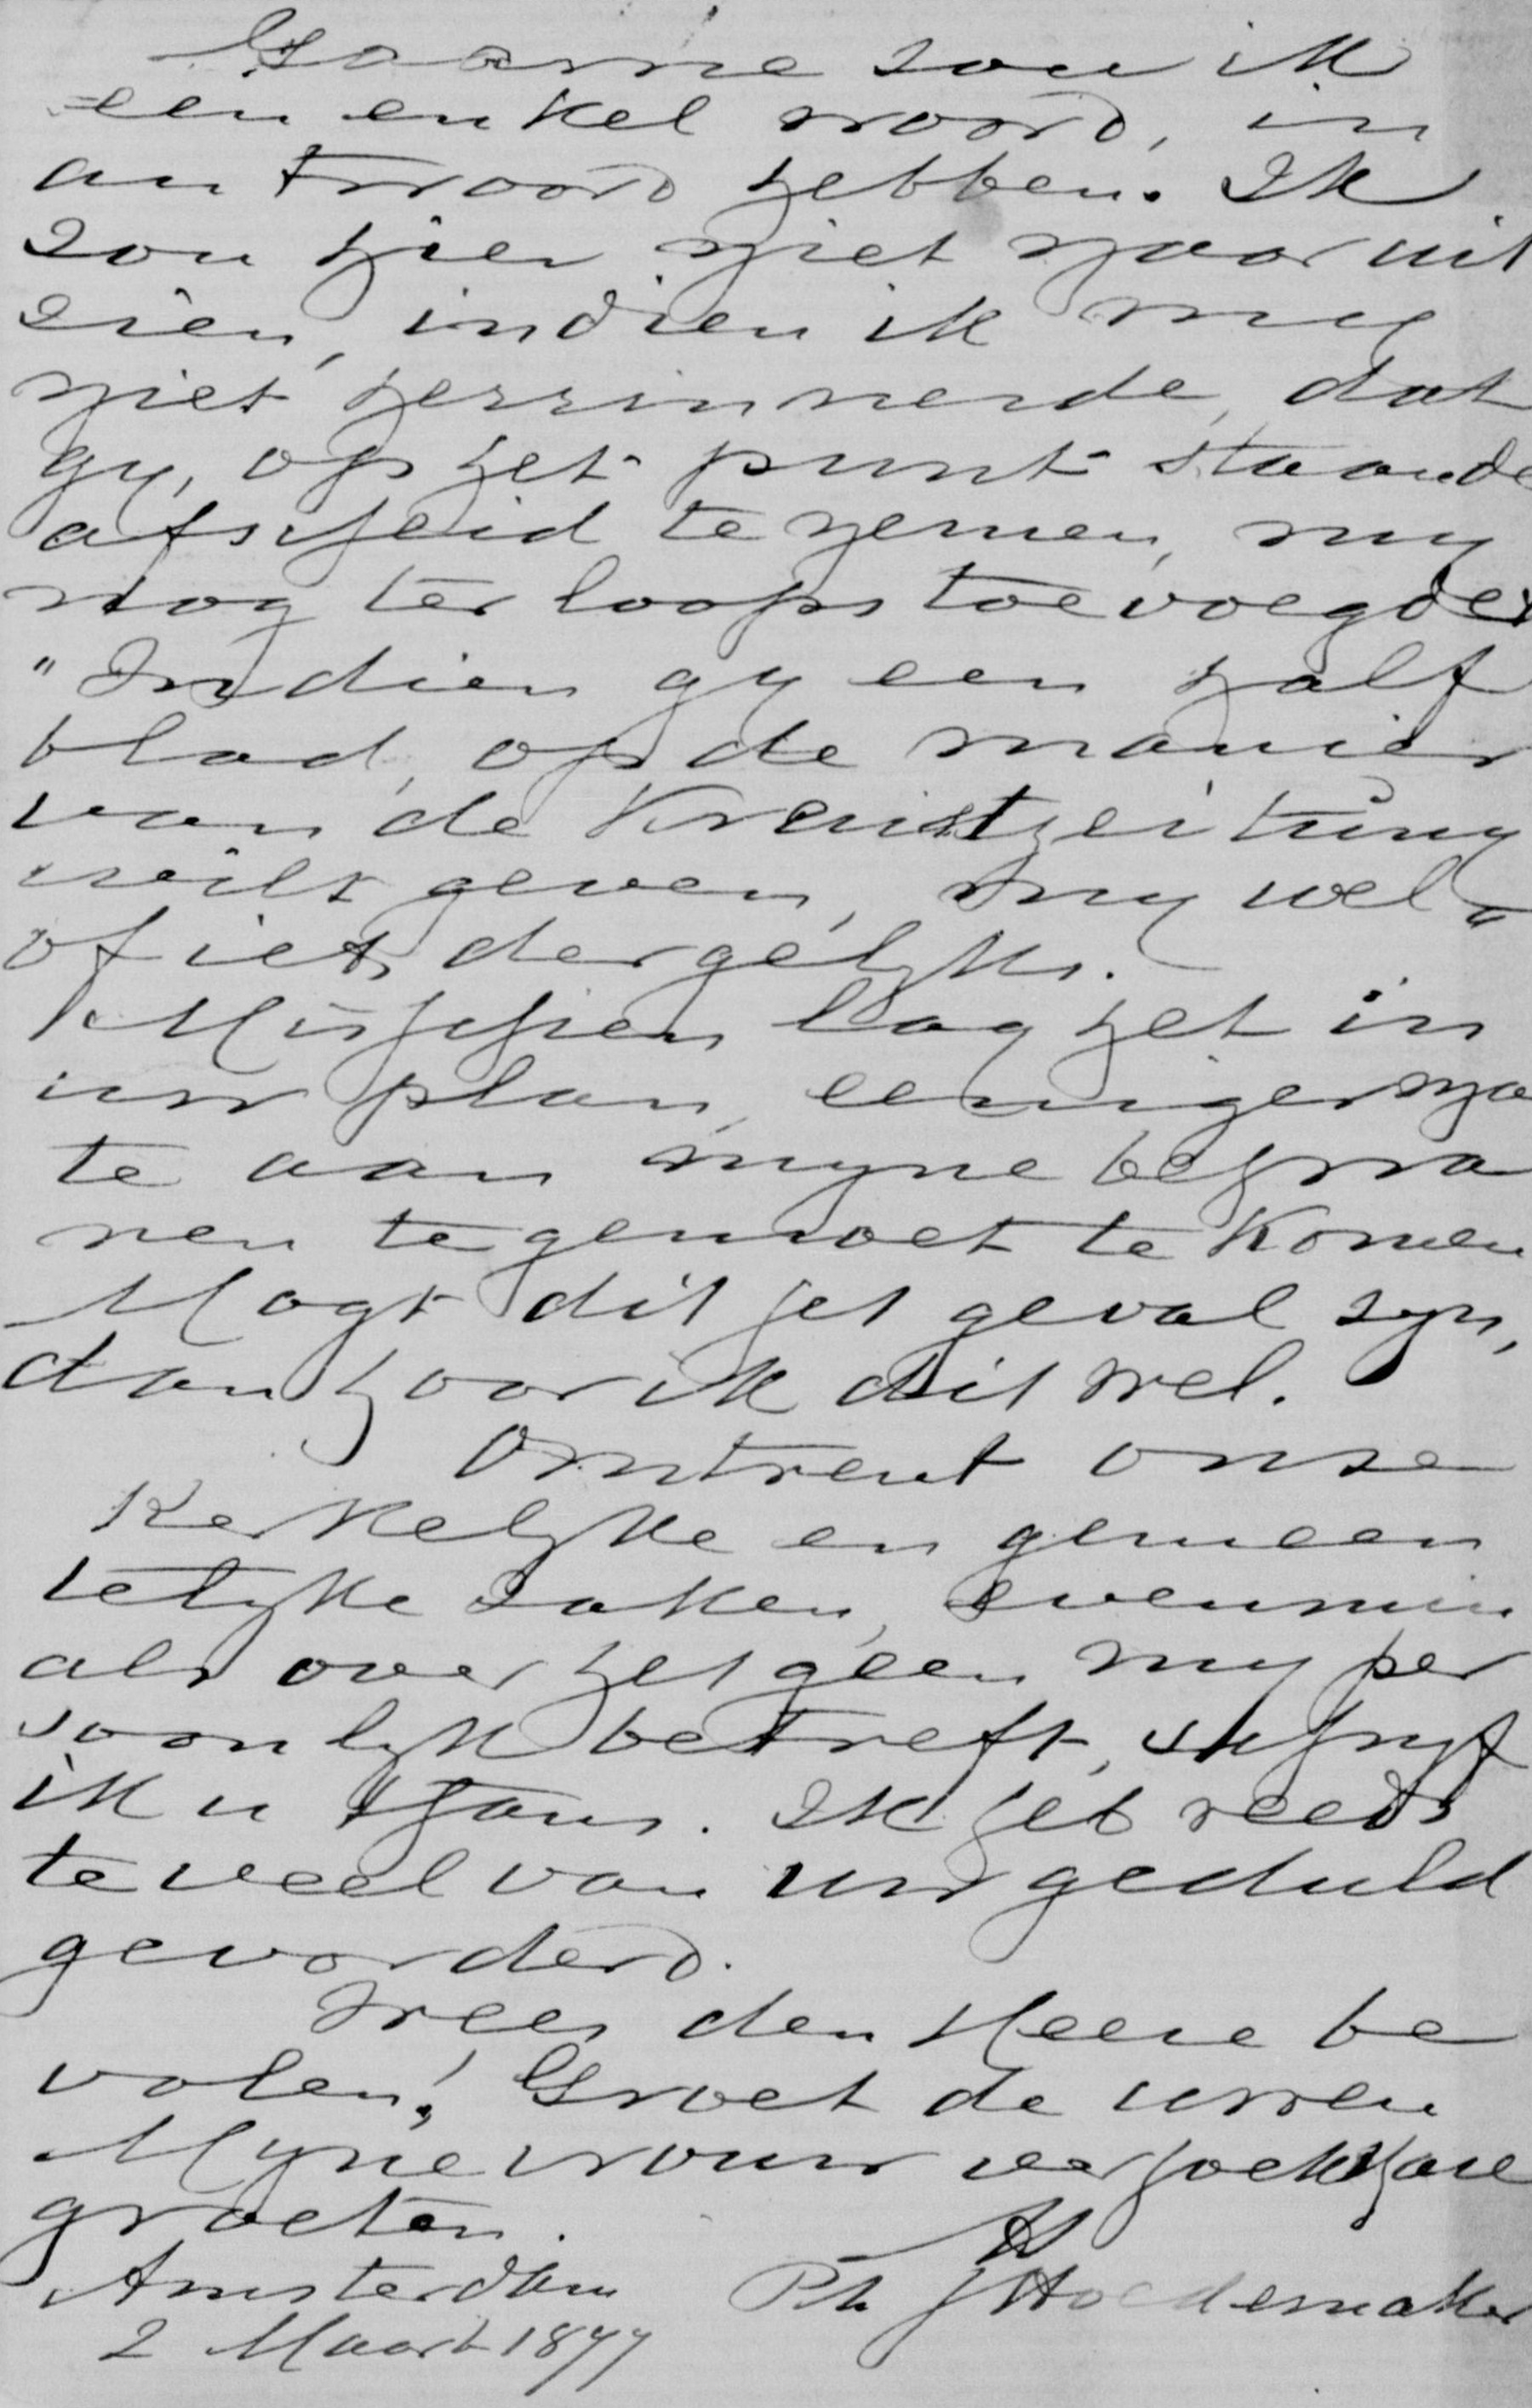 Gaarne zou ik
een enkel woord, in
antwoord hebben. Ik
zou hier niet naar uit
zien, indien ik my
niet herrinnerde, dat
gy, op het punt staande
afscheid te nemen, my
nog ter loops toevoegdet
"Indien gy een half
blad, op de manier
van de Kreuistzeitung
wilt geven, my wel"
of iets dergelyks.
Misschien lag het in
uw plan, eenigerma
te aan myne bezwa
ren te gemoet te komen
Mogt dit het geval zyn,
dan hoor ik dit wel.
Omtrent onze
Kerkelyke en gemeen
telyke zaken, evenmin
als over hetgeen my per
soonlyk betreft, schryf
ik u thans. Ik heb reeds
te veel van uw geduld
gevorderd.
Wees den Heere be
volen! Groet de uwen
Myne vrouw verzoekt hare
groeten.
Amsterdam Ph J Hoedemaker
2 Maart 1877